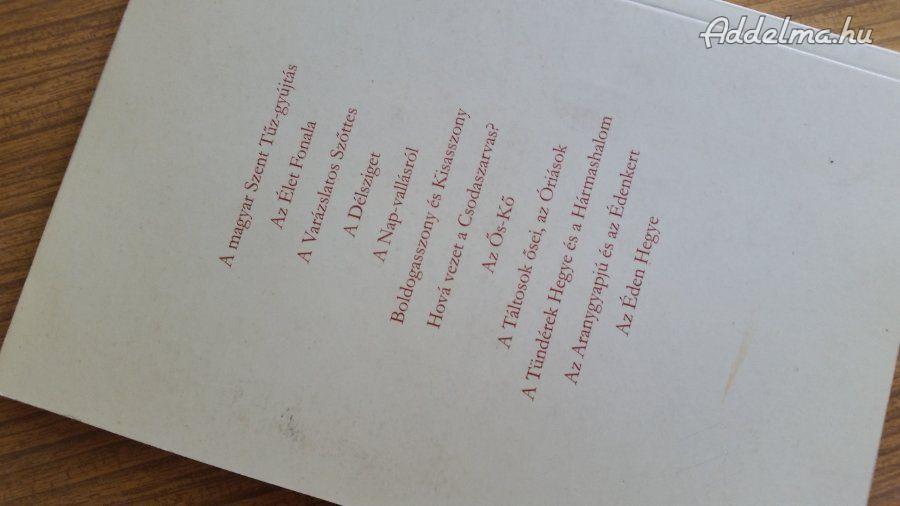 Addelma.hu
A magyar Szent Tűz-gyújtás
Az Élet Fonala
A Varázslatos Szőttes
A Délsziget
A Nap-vallásról
Boldogasszony és Kisasszony
Hová vezet a Csodaszarvas?
Az Ős-Kő
A Táltosok ősei, az Óriások
A Tündérek Hegye és a Hármashalom
Az Aranygyapjú és az Édenkert
Az Éden Hegye